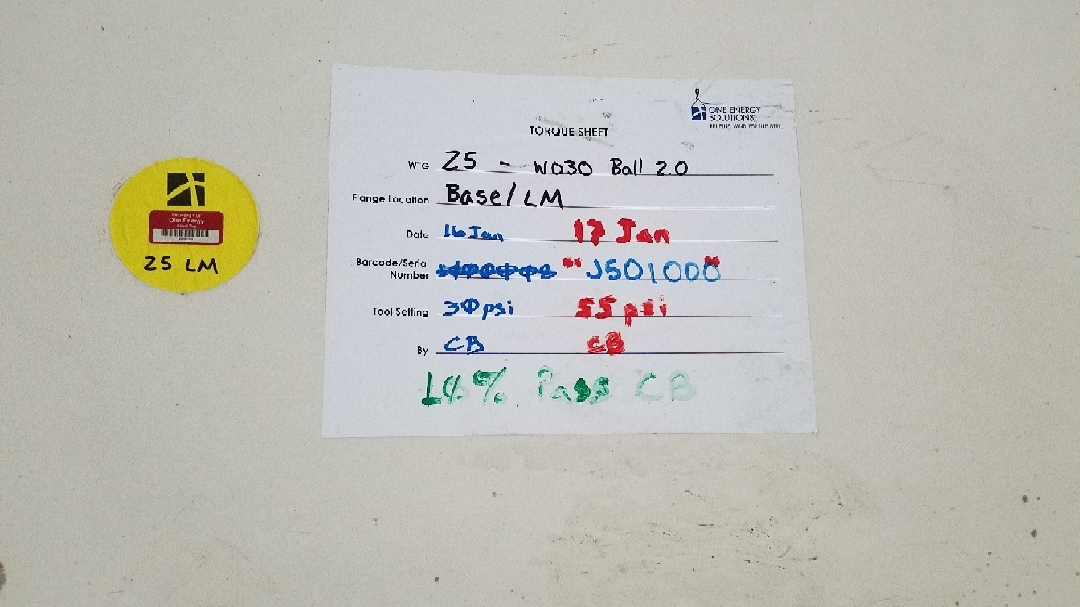 ONE ENERGY
SOLUTIONS
TORQUE SHEET
WTG Z5 - W030 Ball 2.0
Flange Location Base/LM
Date 16 Jan 17 Jan
Barcode/Serial
Number J501000
Tool Setting 30 psi 55 psi
By CB CB
Pass CB
One Energy
Z5 LM